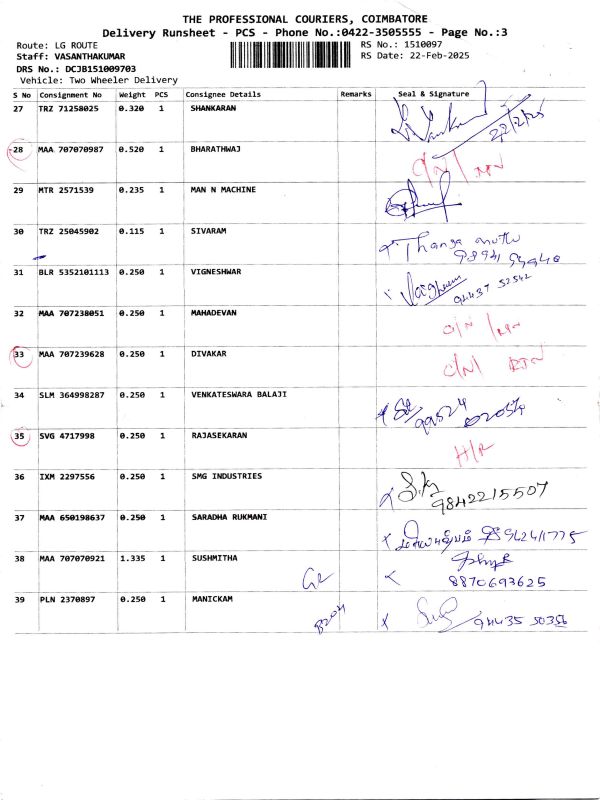 THE PROFESSIONAL COURIERS, COIMBATORE
Delivery Runsheet - PCS - Phone No.:0422-3505555 - Page No.:3
Route: LG ROUTE
RS No.: 1510097
Staff: VASANTHAKUMAR
RS Date: 22-Feb-2025
DRS No.: DCJB151009703
Vehicle: Two Wheeler Delivery
S No Consignment No Weight PCS Consignee Details Remarks Seal & Signature
27 TRZ 71258025 0.320 1 SHANKARAN
22/2/25
28 MAA 707070987 0.520 1 BHARATHWAJ
29 MTR 2571539 0.235 1 MAN N MACHINE
30 TRZ 25045902 0.115 1 SIVARAM Thanga muthu
31 BLR 5352101113 0.250 1 VIGNESHWAR
94437 52542
32 MAA 707238051 0.250 1 MAHADEVAN
33 MAA 707239628 0.250 1 DIVAKAR
34 SLM 364998287 0.250 1 VENKATESWARA BALAJI
35 SVG 4717998 0.250 1 RAJASEKARAN
36 IXM 2297556 0.250 1 SMG INDUSTRIES
9842215507
37 MAA 650198637 0.250 1 SARADHA RUKMANI 942411775
38 MAA 707070921 1.335 1 SUSHMITHA
8870693625
39 PLN 2370897 0.250 1 MANICKAM
8204 94435 50356